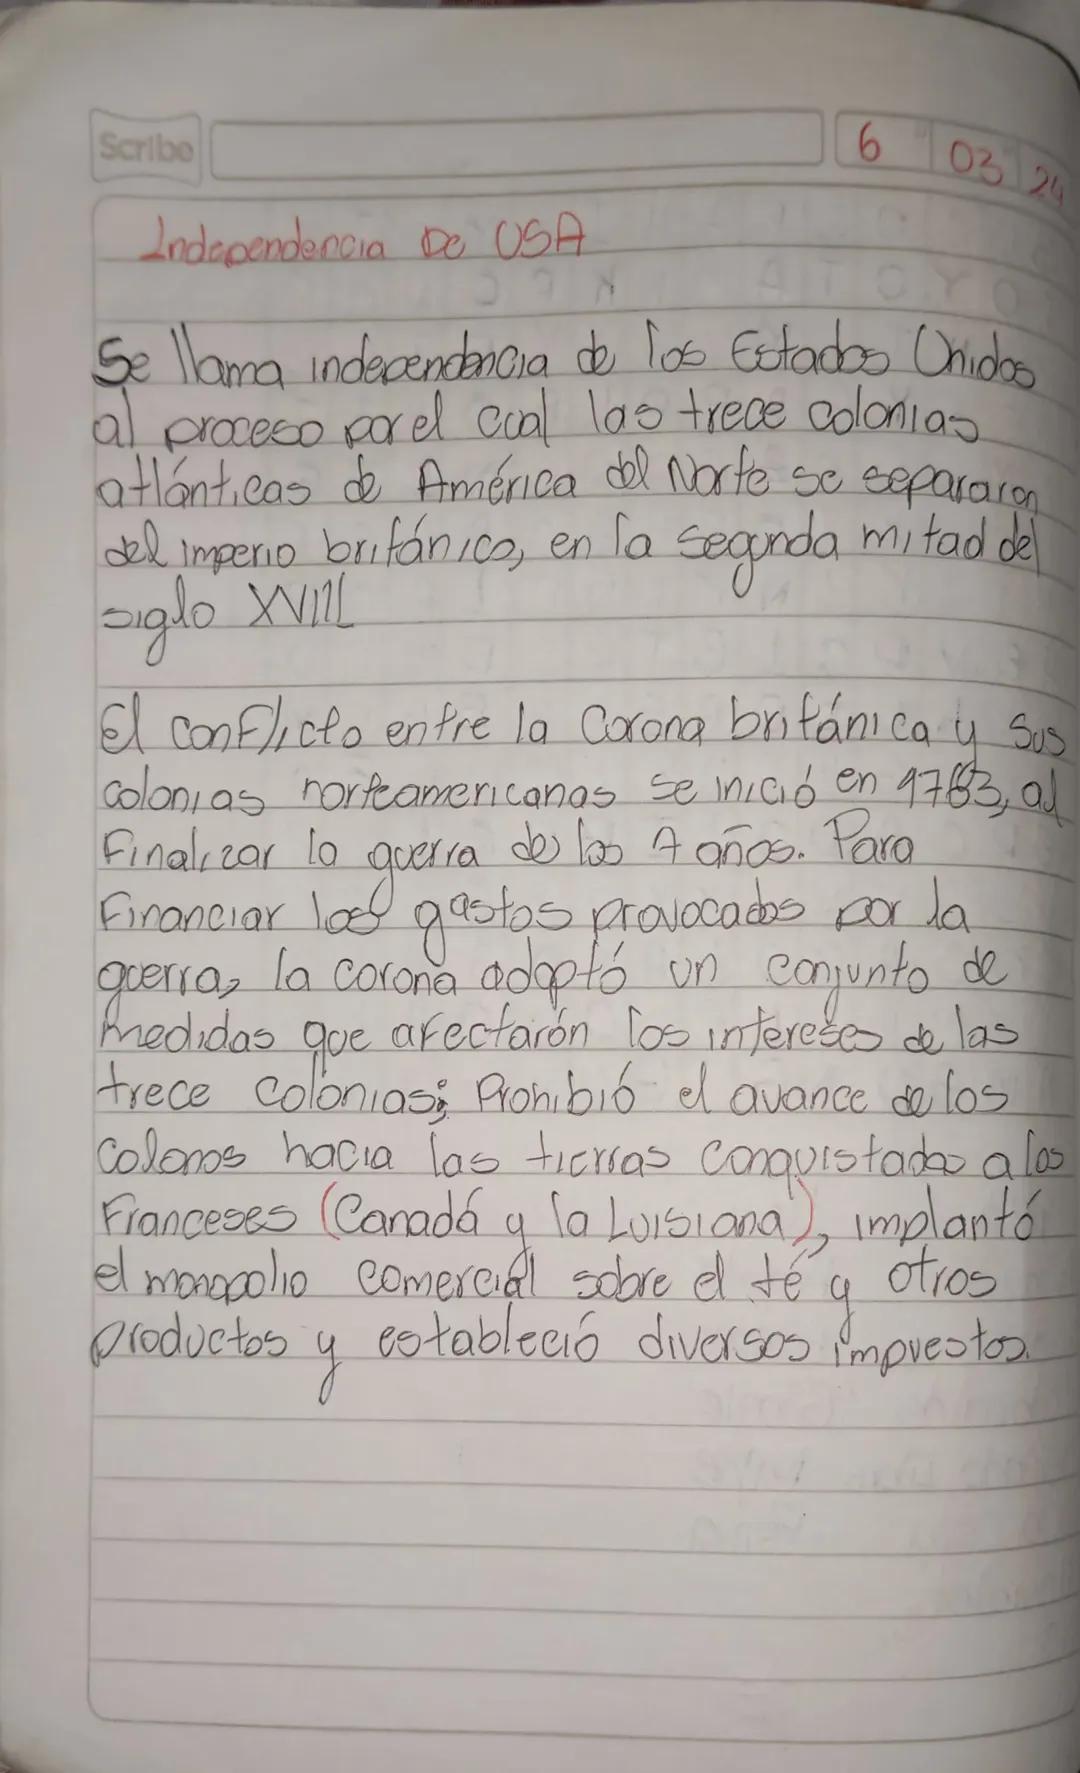 Scribe
6 03 24
Independencia De USA
Se llama independencia de los Estados Unidos
al proceso por el cual las trece colonias
atlánticas de América del Norte se separaron
del imperio británico, en la segunda mitad del
siglo XVIII
El conflicto entre la Corona británica y sus
colonias norteamericanas se inició en 1763, al
Finalizar la guerra de los 7 años. Para
Financiar los gastos provocados por la
guerra, la corona adoptó un conjunto de
medidas que afectarón los intereses de las
trece colonias; Prohibió el avance de los
colonos hacia las tierras conquistadas a los
Franceses (Canadá y la Luisiana), implantó
el monopolio comercial sobre el té y otros
productos y estableció diversos impuestos.